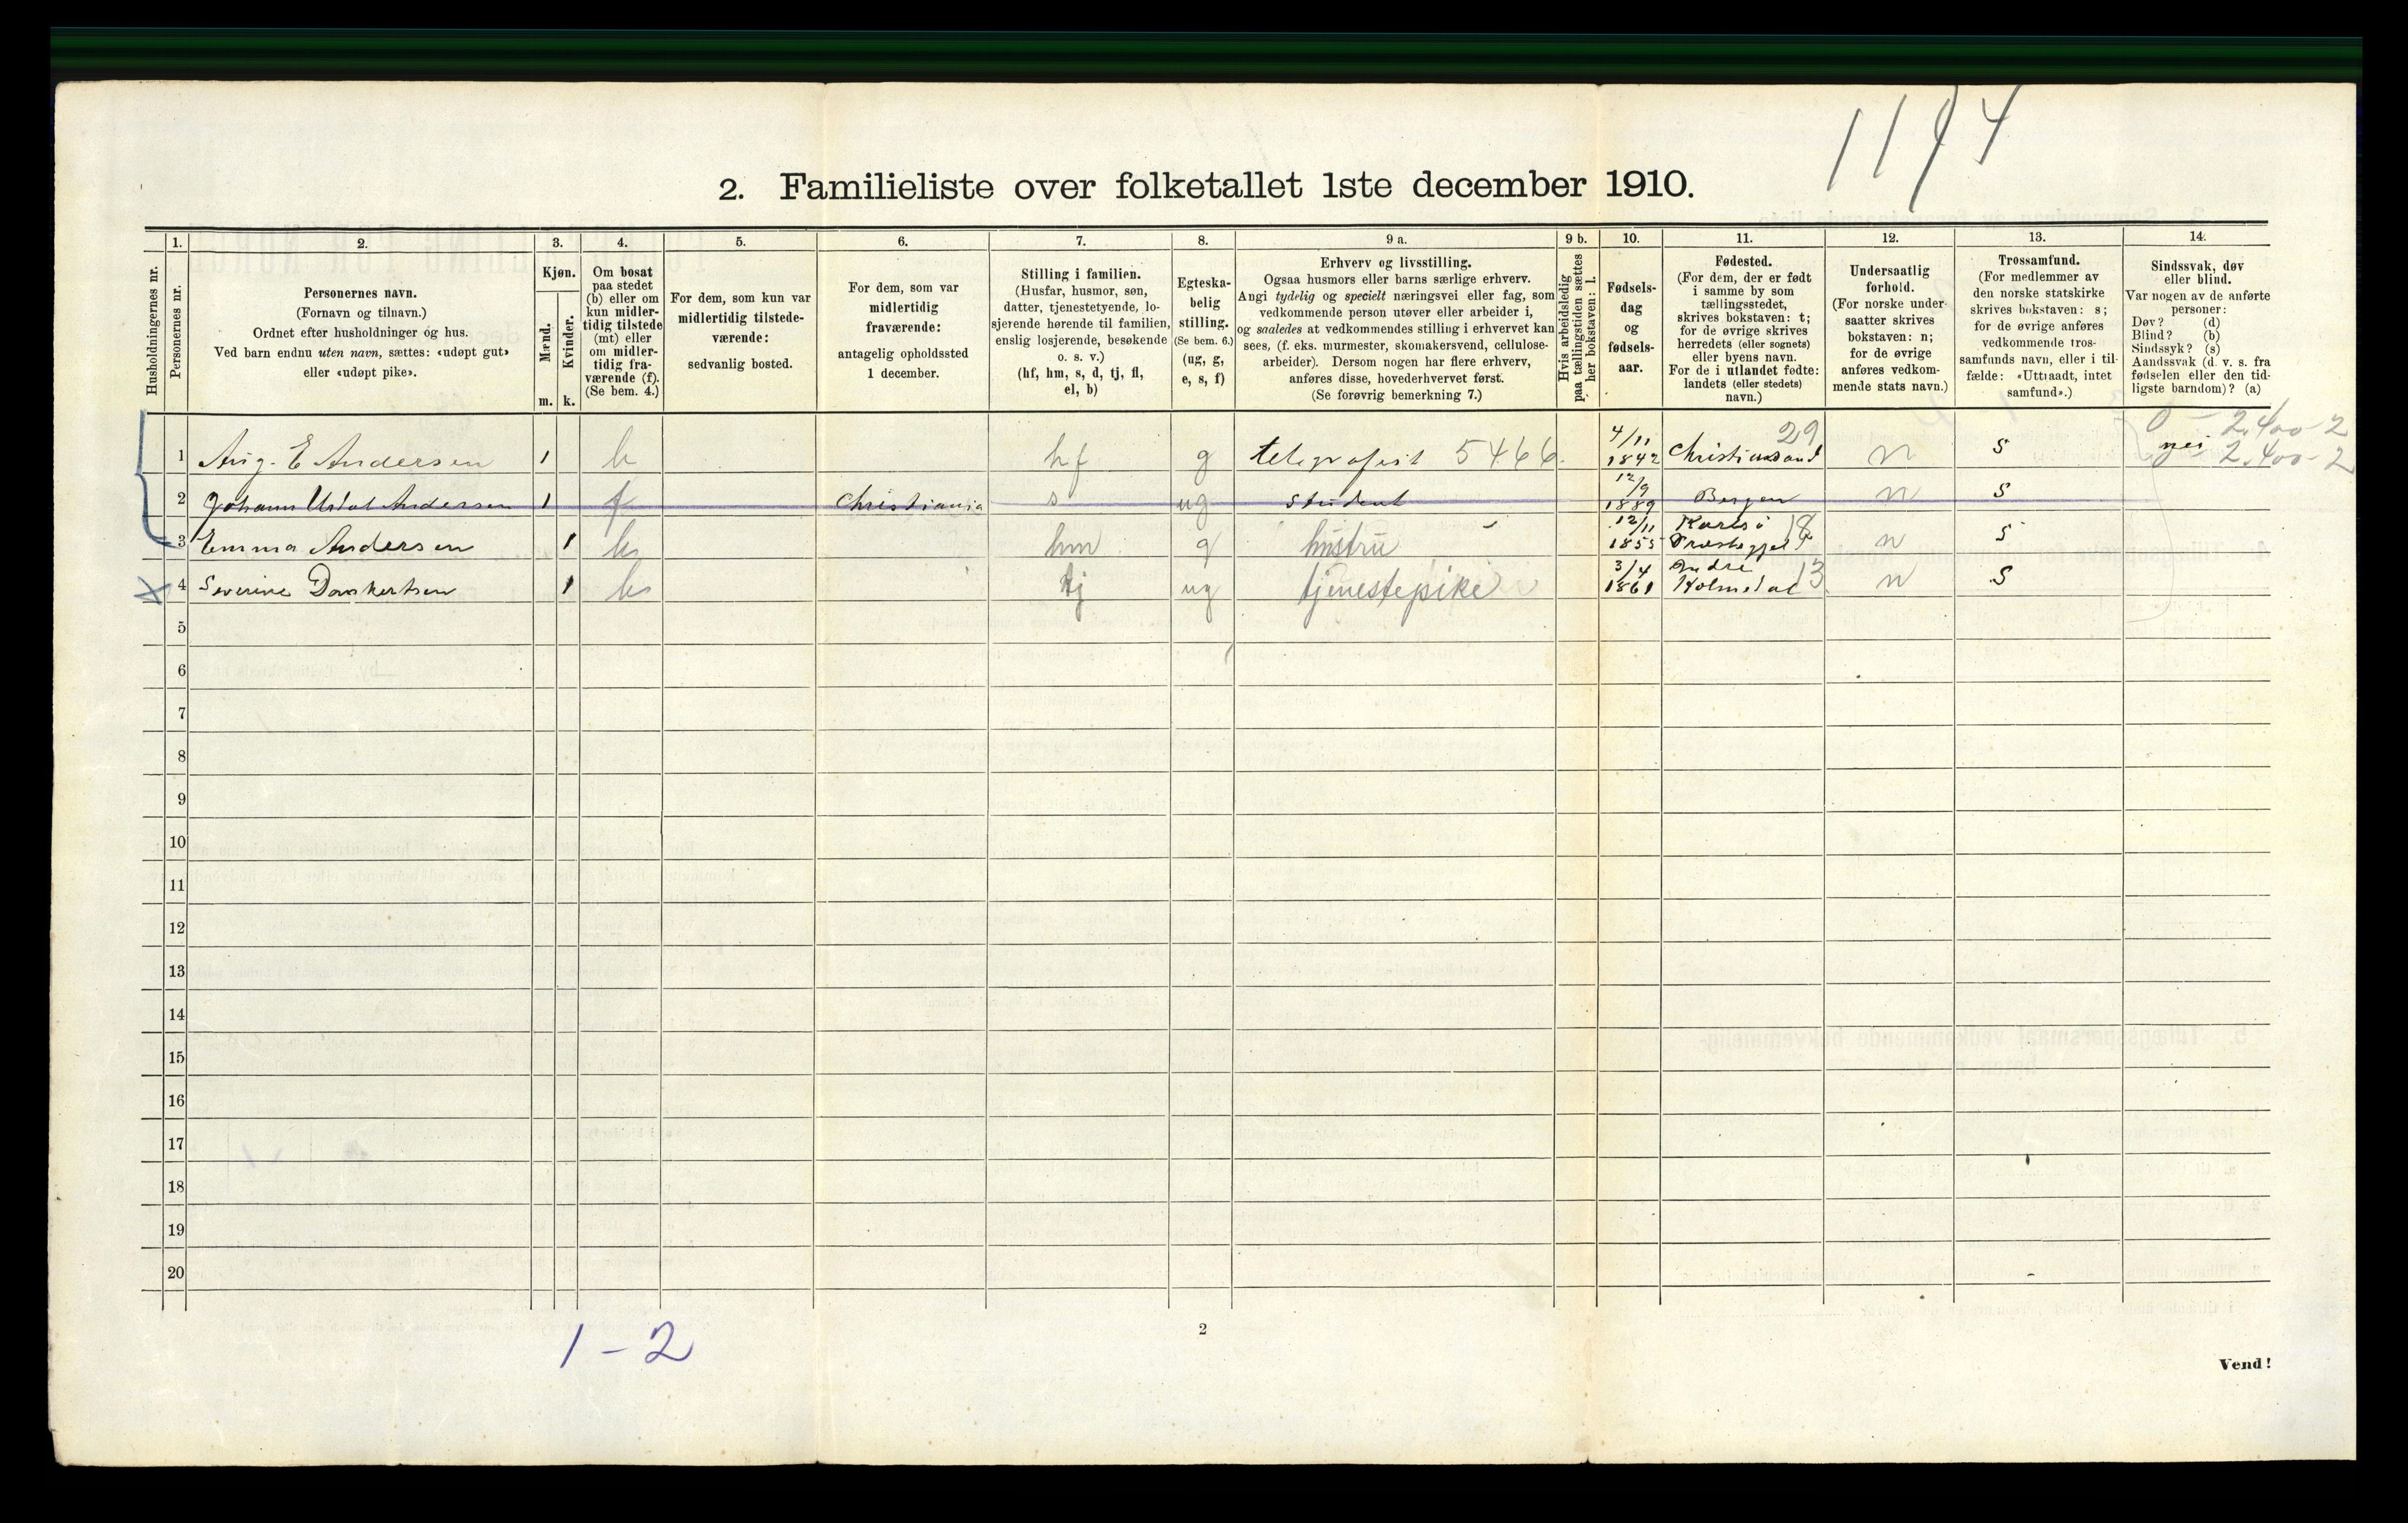 1194
2. Familieliste over folketallet 1ste december 1910.
Husholdningernes nr.
1.
Personernes nr.
2.
Personernes navn.
(Fornavn og tilnavn.)
Ordnet efter husholdninger og hus.
Ved barn endnu uten navn, sættes: «udøpt gut»
eller «udøpt pike».
3.
Kjøn.
Mænd.
Kvinder.
m. k.
4.
Om bosat
paa stedet
(b) eller om
kun midler-
tidig tilstede
(mt) eller
om midler-
tidig fra-
værende (f).
(Se bem. 4.)
5.
For dem, som kun var
midlertidig tilstede-
værende:
sedvanlig bosted.
6.
For dem, som var
midlertidig
fraværende:
antagelig opholdssted
1 december.
7.
Stilling i familien.
(Husfar, husmor, søn,
datter, tjenestetyende, lo-
sjerende hørende til familien,
enslig losjerende, besøkende
o. s. v.)
(hf, hm, s, d, tj, fl,
el, b)
8.
Egteska-
belig
stilling.
(Se bem. 6.)
(ug, g,
e, s, f)
9 a.
Erhverv og livsstilling.
Ogsaa husmors eller barns særlige erhverv.
Angi tydelig og specielt næringsvei eller fag, som
vedkommende person utøver eller arbeider i,
og saaledes at vedkommendes stilling i erhvervet kan
sees, (f. eks. murmester, skomakersvend, cellulose-
arbeider). Dersom nogen har flere erhverv,
anføres disse, hovederhvervet først.
(Se forøvrig bemerkning 7.)
9 b.
Hvis arbeidsledig
paa tællingstiden sættes
her bokstaven: l.
10.
Fødsels-
dag
og
fødsels-
aar.
11.
Fødested.
(For dem, der er født
i samme by som
tællingsstedet,
skrives bokstaven: t;
for de øvrige skrives
herredets (eller sognets)
eller byens navn.
For de i utlandet fødte:
landets (eller stedets)
navn.)
12.
Undersaatlig
forhold.
(For norske under-
saatter skrives
bokstaven: n;
for de øvrige
anføres vedkom-
mende stats navn.)
13.
Trossamfund.
(For medlemmer av
den norske statskirke
skrives bokstaven: s;
for de øvrige anføres
vedkommende tros-
samfunds navn, eller i til-
fælde: «Uttraadt, intet
samfund».)
14.
Sindssvak, døv
eller blind.
Var nogen av de anførte
personer:
Døv? (d)
Blind? (b)
Sindssyk? (s)
Aandssvak (d. v. s. fra
fødselen eller den tid-
ligste barndom)? (a)
0 - 2.400-2
1 Aug. E Andersen 1 b hf g telegrafist 5466. 4/11 1842 Christiansand 29 n s nei 2.400-2
2 Johann Andersen 1 f Christiania s ug student 12/9 1889 Bergen n s
3 Emma Andersen 1 b hm g hustru 12/11 1855 Karlsö Præstegjel 18 n s
4 Severine Dankertsen 1 b tj ug tjenestepike 3/4 1861 Indre Holmedal 13 n s
5
6
7
8
9
10
11
12
13
14
15
16
17
18
19
20
1 - 2
2
Vend!